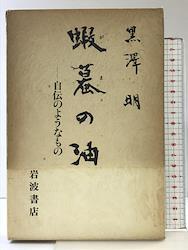 黒澤 明
蝦蟇の油
がま
―自伝のようなもの
岩波書店